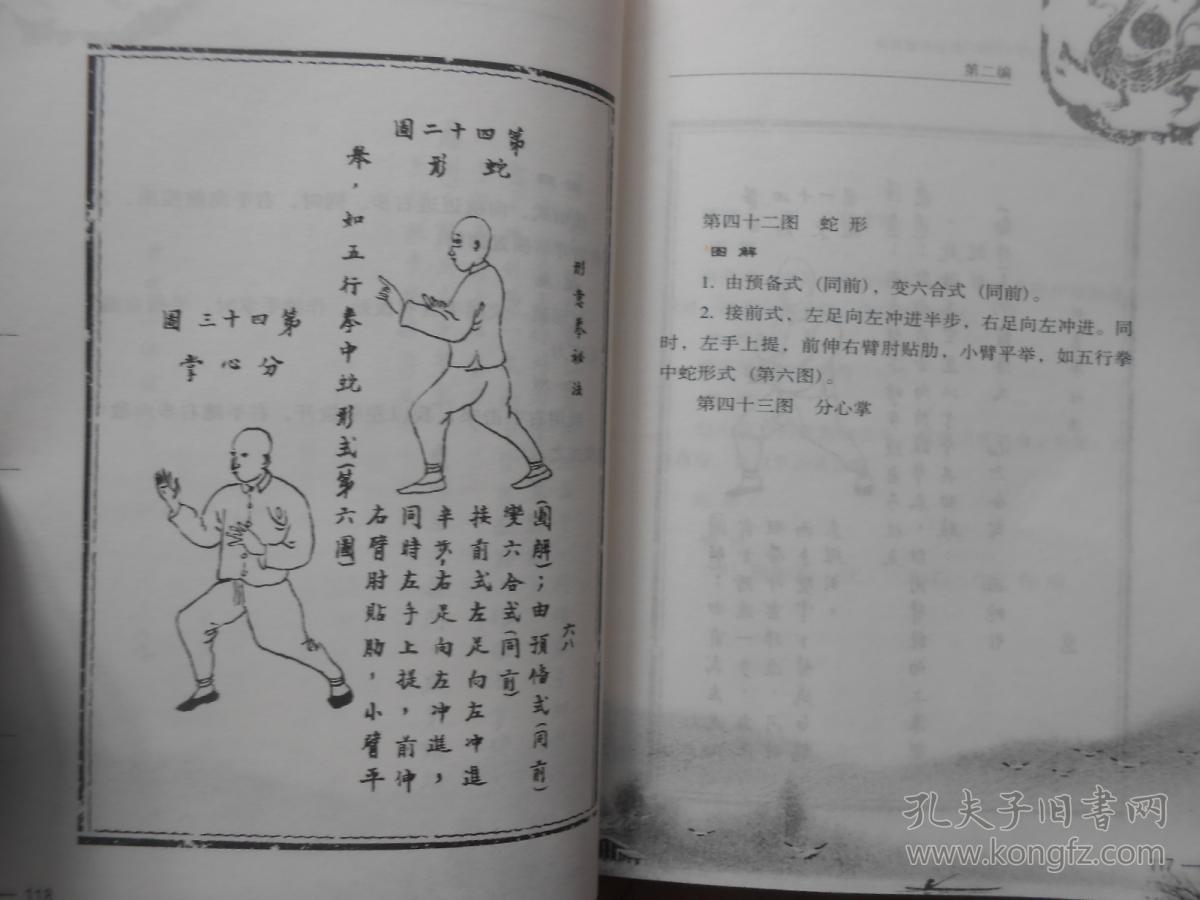 第四十二圖
蛇形
形意拳
六八
(圖解)；由預備式(同前)
變六合式(同前)
接前式左足向左冲進
半步，右足向左冲進，
同時左手上提，前伸
右臂肘貼肋，小臂平
舉，如五行拳中蛇形式(第六圖)
第四十三圖
分心掌
118
第二编
第四十二图 蛇形
图解
1. 由预备式（同前），变六合式（同前）。
2. 接前式，左足向左冲进半步，右足向左冲进。同
时，左手上提，前伸右臂肘贴肋，小臂平举，如五行拳
中蛇形式（第六图）。
第四十三图 分心掌
117
孔夫子旧书网
www.kongfz.com